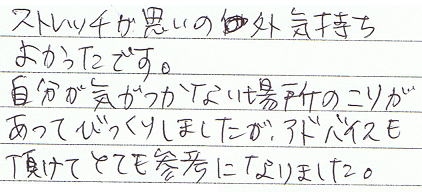 ストレッチが思いの外気持ち
よかったです。
自分が気がつかない場所のこりが
あってびっくりしましたが、アドバイスも
頂けてとても参考になりました。